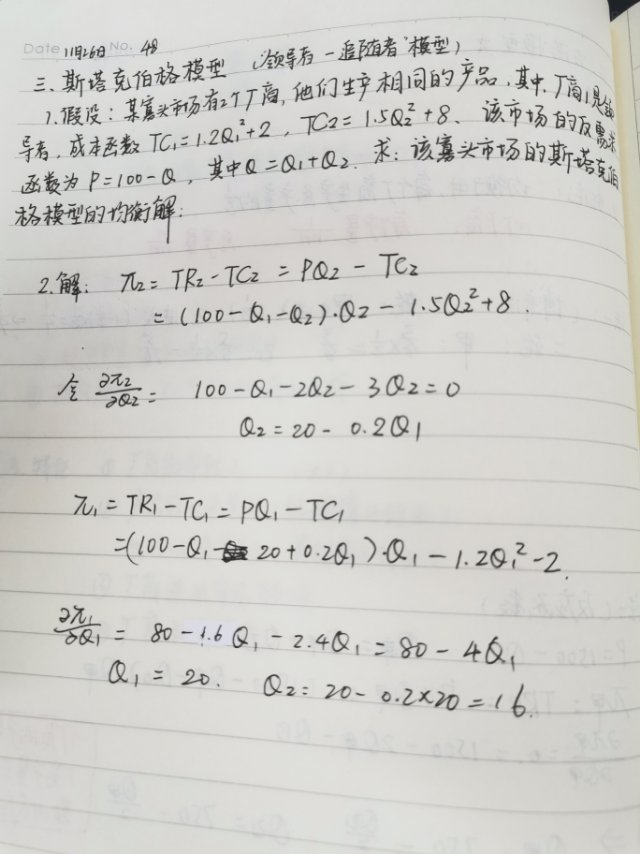 Date 11月26日 No. 48
三、斯塔克伯格模型 (“领导者-追随者”模型)
1.假设:某寡头市场有2个厂商,他们生产相同的产品,其中,厂商1是领
导者,成本函数TC₁=1.2Q₁²+2,TC₂=1.5Q₂²+8. 该市场的反需求
函数为P=100-Q,其中Q=Q₁+Q₂. 求:该寡头市场的斯塔克伯
格模型的均衡解:
2.解: π₂=TR₂-TC₂=PQ₂-TC₂
=(100-Q₁-Q₂)·Q₂-1.5Q₂²+8.
令 ∂π₂/∂Q₂= 100-Q₁-2Q₂-3Q₂=0
Q₂=20-0.2Q₁
π₁=TR₁-TC₁=PQ₁-TC₁
=(100-Q₁-20+0.2Q₁)·Q₁-1.2Q₁²-2.
∂π₁/∂Q₁=80-1.6Q₁-2.4Q₁=80-4Q₁
Q₁=20. Q₂=20-0.2×20=16.